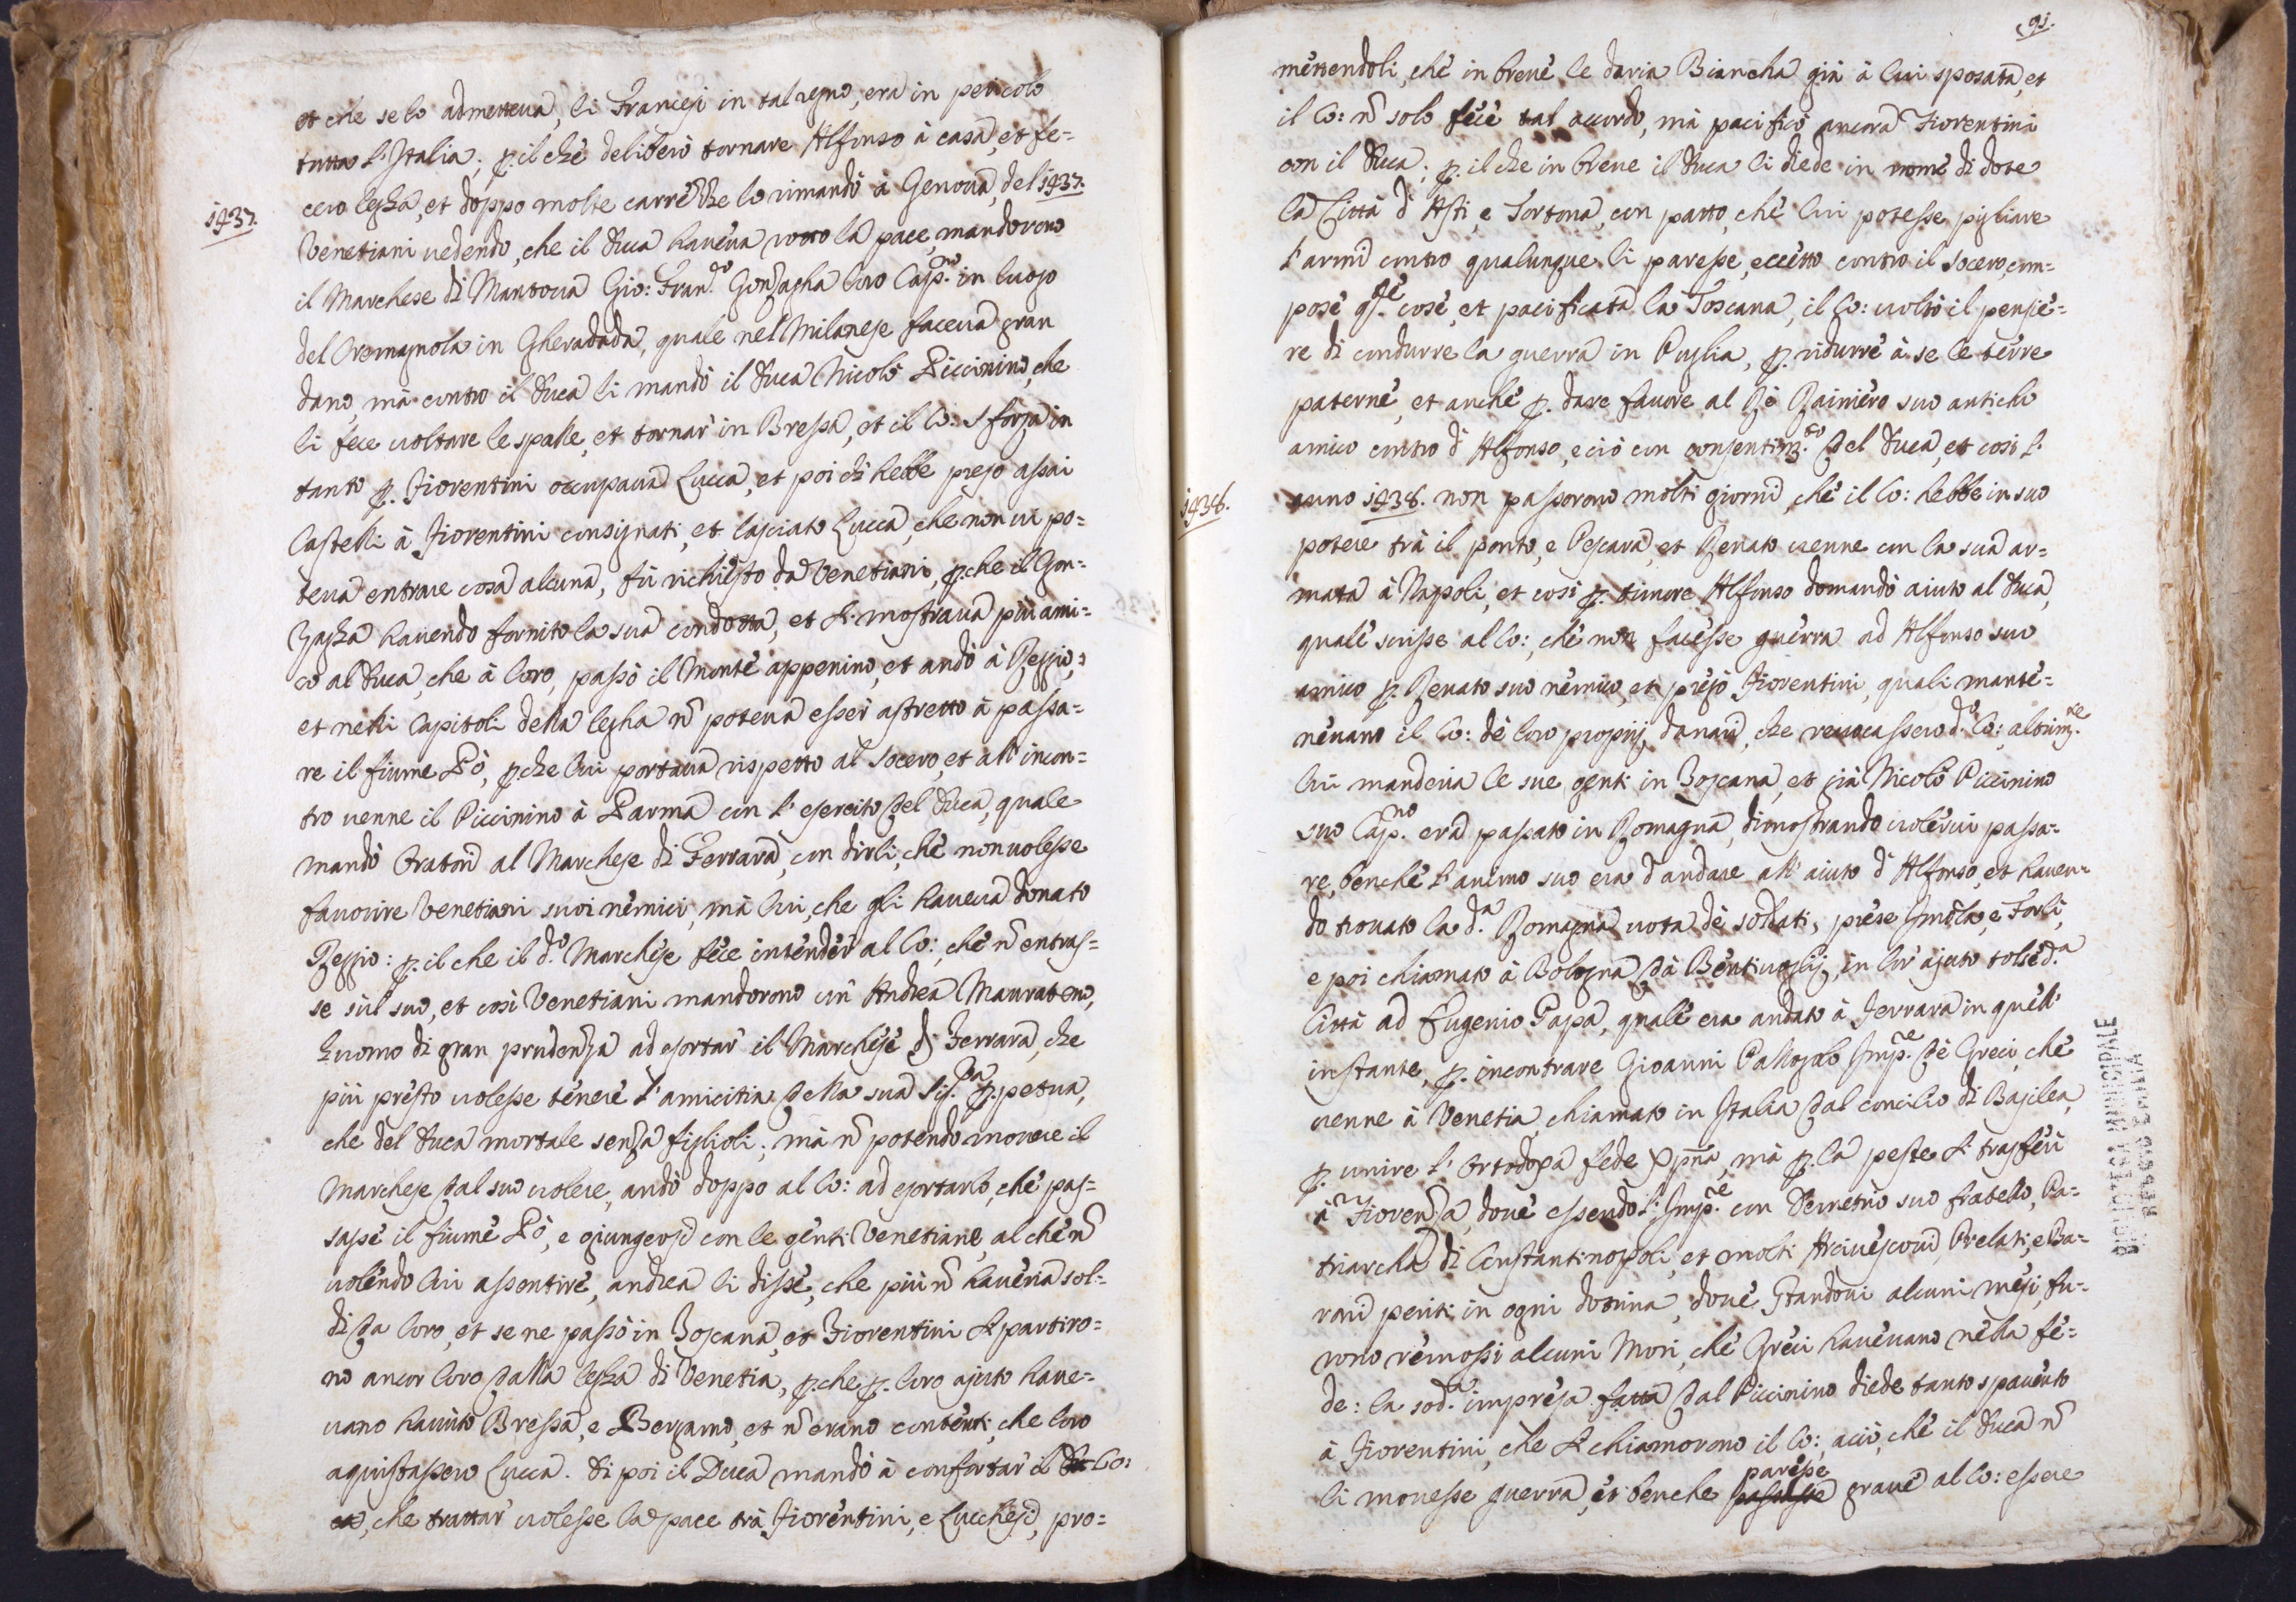 et che se lo admetteua, li Francesi in tal regno, era in pericolo
tutta l'Italia; p. il che deliberò tornare Alfonso à casa, et fe=
cero legha, et doppo molte carrezze lo rimandò à Genoua, del 1437.
1437.
Venetiani uedendo, che il Duca haueua rotto la pace, mandorono
il Marchese di Mantoua Gio: Fran.co Gonzagha loro Cap.no in luogo
del Cromagnola in Gheradada, quale nel Milanese faceua gran
dano, mà contro il Duca li mandò il Duca Nicolò Piccinino, che
li fece uoltare le spalle, et tornar in Bressa, et il Co: Sforza in
tanto p. Fiorentini occupaua Lucca, et poi ch'hebbe preso assai
Castelli à Fiorentini consignati, et lasciato Lucca, che non ui po=
teua entrare cosa alcuna, fù richiesto da Venetiani, p.che il Gon=
zagha hauendo fornito la sua condotta, et si mostraua più ami=
co al Duca, che à loro, passò il Monte appenino, et andò à Reggio,
et nelli Capitoli della legha nõ poteua esser astretto à passa=
re il fiume Pò, p.che lui portaua rispetto al Socero, et all'incon=
tro uenne il Piccinino à Parma con l'esercito del Duca, quale
mandò Oratori al Marchese di Ferrara, con dirli, che non uolesse
fauorire Venetiani suoi nemici, mà lui, che gli haueua donato
Reggio: p. il che il d.o Marchese fece intender al Co:, che nõ entras=
se sùl suo, et così Venetiani mandorono un Andrea Mauroteno,
huomo di gran prudenza ad esortar il Marchese di Ferrara, che
più presto uolesse tenere l'amicitia della sua Sig.ria p.petua,
che del Duca mortale senza figlioli; mà nõ potendo mouere il
Marchese dal suo uolere, andò doppo al Co: ad esortarlo, che pas=
sasse il fiume Pò, e giungersi con le genti Venetiane, al che nõ
uolendo lui assentire, andrea li disse, che più nõ haueria sol=
di da loro, et se ne passò in Toscana, et Fiorentini si partiro=
no ancor loro dalla legha di Venetia, p.che p. loro ajuto haue=
uano hauuto Bressa, e Bergamo, et nõ erano contenti, che loro
aquistassero Lucca. Di poi il Duca mandò à confortar il Co:
che trattar uolesse la pace trà Fiorentini, e Lucchesi, pro=
91.
mettendoli, che in breue le daria Biancha già à lui sposata, et
il Co: nõ solo fece tal accordo, mà pacificò ancora Fiorentini
con il Duca; p. il che in breue il Duca li diede in nome di dote
la Città d'Asti, e Tortona, con patto, che lui potesse pigliare
l'armi contro qualunque li paresse, eccetto contro il Socero, com=
pose q.ste cose, et pacificata la Toscana, il Co: uoltò il pensie=
re di condurre la guerra in Puglia, p. ridurre à se le terre
paterne, et anche p. dare fauore al Rè Rainiero suo anticho
amico contro d'Alfonso, e ciò con consentim.to del Duca, et così l'
1438.
anno 1438. non passorono molti giorni, che il Co: hebbe in suo
potere trà il ponto, e Pescara, et Renato uenne con la sua ar=
mata à Napoli, et così p. timore Alfonso domandò aiuto al Duca,
quale scrisse al Co:, che non facesse guerra ad Alfonso suo
amico p. Renato suo nemico, et pregò Fiorentini, quali mante=
neuano il Co: de loro proprij danari, che reuocassero d.o Co:, altrim.te
lui manderia le sue genti in Toscana, et già Nicolò Piccinino
suo Cap.no era passato in Romagna, dimostrando uolerui passa=
re, benche l'animo suo era d'andare all'aiuto d'Alfonso, et hauen=
do trouato la d.a Romagna uota de soldati, prese Imola, e Forlì,
e poi chiamato à Bologna dà Bentiuoglij, in lor ajuto tolse d.a
Città ad Eugenio Papa, quale era andato à Ferrara in quell'
instante, p. incontrare Gioanni Pallogolo Imp.re de Greci, che
uenne à Venetia chiamato in Italia dal concilio di Basilea,
p. unire l'Ortodoxa fede Xp̃na, mà p. la peste si trasferì
à Fiorenza, doue essendo l'Imp.re con Demetrio suo fratello, Pa=
triarcha di Constantinopoli, et molti Arciuescoui, Prelati, e Ba=
roni periti in ogni dotrina, doue standoui alcuni mesi, fu=
rono remossi alcuni Mori, che Greci haueuano nella fe=
de: la sod.a impresa fatta dal Piccinino diede tanto spauento
à Fiorentini, che si chiamorono il Co:, acciò, che il Duca nõ
li mouesse guerra, et benche paresse graue al Co: essere